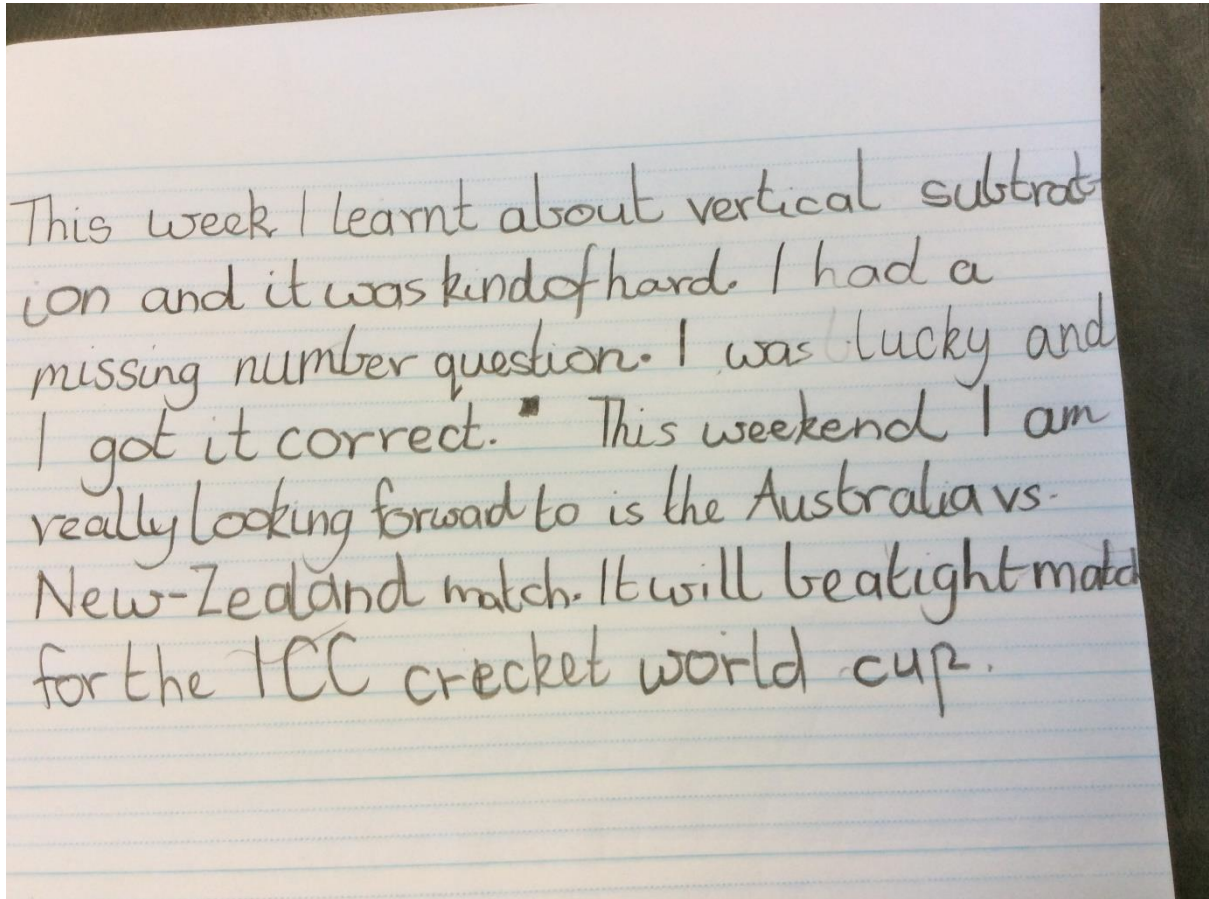 This week I learnt about vertical subtrat-
ion and it was kind of hard. I had a
missing number question. I was lucky and
I got it correct. This weekend I am
really looking forwad to is the Australia vs.
New-Zealand match. It will be a tight match
for the ICC crecket world cup.